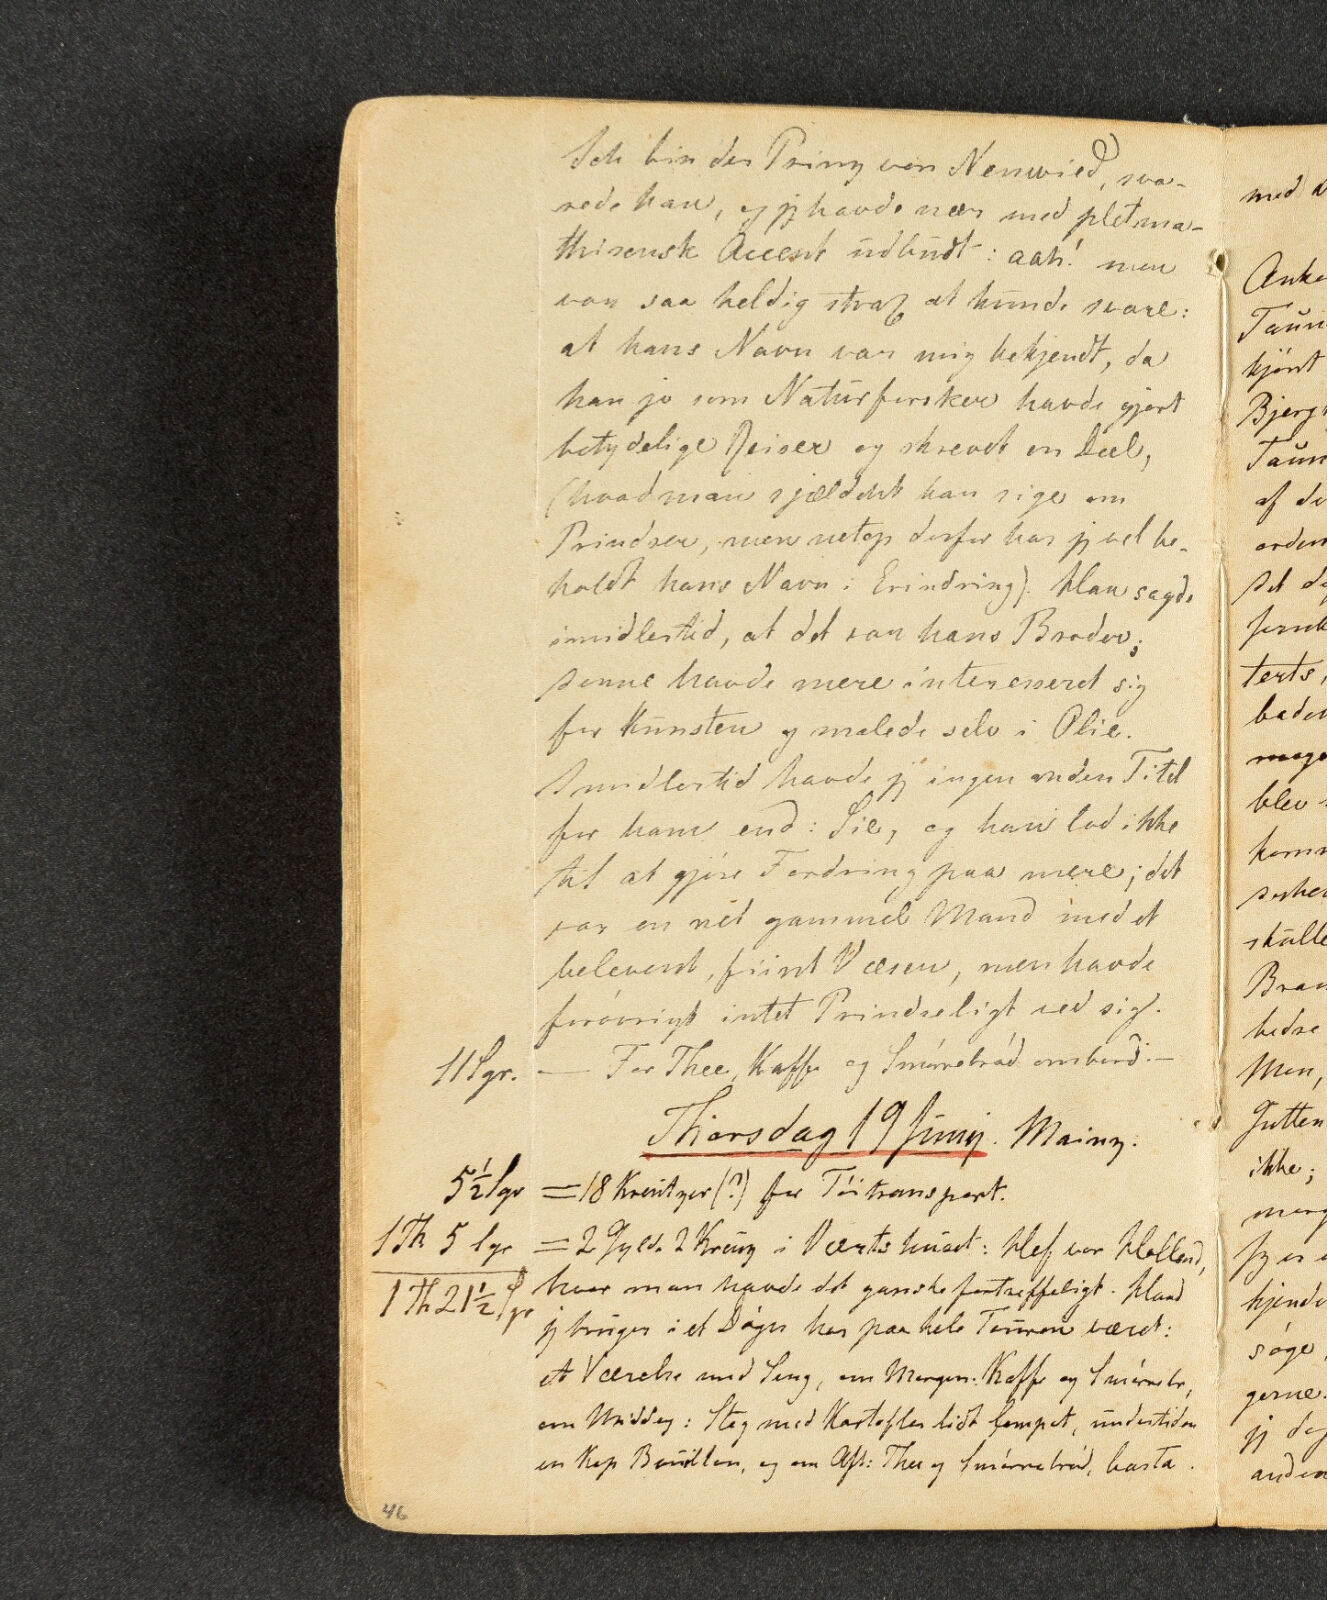 Ich bin der Prinz von Neuwied, sva-
rede han, og jeg havde nær med pletma-
thisensk Accent udbrudt: aah! men
var saa heldig strax at kunde svare:
at hans Navn var mig bekjendt, da
han jo som Naturforsker havde gjort
betydelige Reiser og skrevet en Deel,
(hvad man sjældent kan sige om
Prindser, men netop derfor har jeg vel be-
holdt hans Navn i Erindring). Han sagde
imidlertid, at det var hans Broder;
denne havde mere interesseret sig
for Kunsten og malede selv i Olie.
Imidlertid havde jeg ingen anden Titel
for ham end: Sie, og han lod ikke
til at gjöre Fordring paa mere; det
var en net gammel Mand med et
belevent, fiint Væsen, men havde
forövrigt intet Prindseligt ved sig.
11 Sgr. — For Thee, Kaffe og Smörrebröd ombord. —
Thorsdag 19 Junij. Mainz.
5½ Sgr = 18 Kreutzer (?) for Töitransport.
1 Th 5 Sgr = 2 Gyld. 2 Kreuz i Værtshuset: Hof von Holland,
1 Th 21½ Sgr hvor man havde det ganske fortræffeligt. Hvad
jeg bruger i et Døgn har paa hele Touren været:
et Værelse med Seng, om Morgen: Kaffe og Smörrebr,
om Middag: Steg med Kartofler lidt Compot, undertiden
en Kop Bouillon, og om Aft: Thee og Smörrebröd, basta.
46
med
Anko
Taun
kjönt
Bjerg
Taun
af de
orden
det
terts,
baden
blev
skulle
Bran
bedre
Men,
Gutten
ikke;
jeg er
kjende
söge,
gerne.
jeg
anden